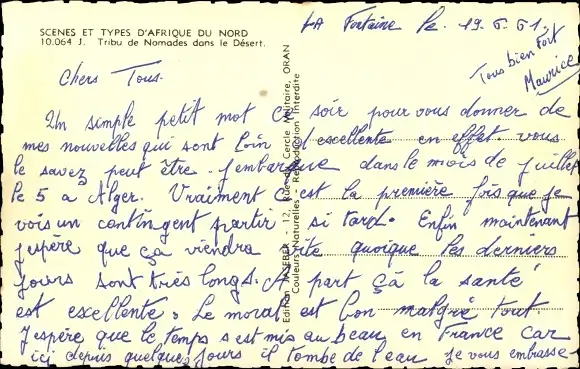 SCENES ET TYPES D'AFRIQUE DU NORD
10.064 J. Tribu de Nomades dans le Désert.
LA Fontaine le. 19.6.61.
Tous bien fort
Maurice
Chers Tous.
Un simple petit mot ce soir pour vous donner de
mes nouvelles qui sont loin d'excellente en effet. vous
le savez peut être. j'embarque dans le mois de juillet
le 5 a Alger. Vraiment c'est la première fois que je
vois un contingent partir si tard. Enfin maintenant
j'espère que ça viendra vite quoique les derniers
jours sont très longs. A part çà la santé
est excellente. Le moral est bon malgré tout.
J'espère que le temps s'est mis au beau en France car
ici depuis quelques jours il tombe de l'eau je vous embrasse-
Edition JAEBER - 12, Rue du Cercle Militaire, ORAN
Couleurs Naturelles - Reproduction Interdite